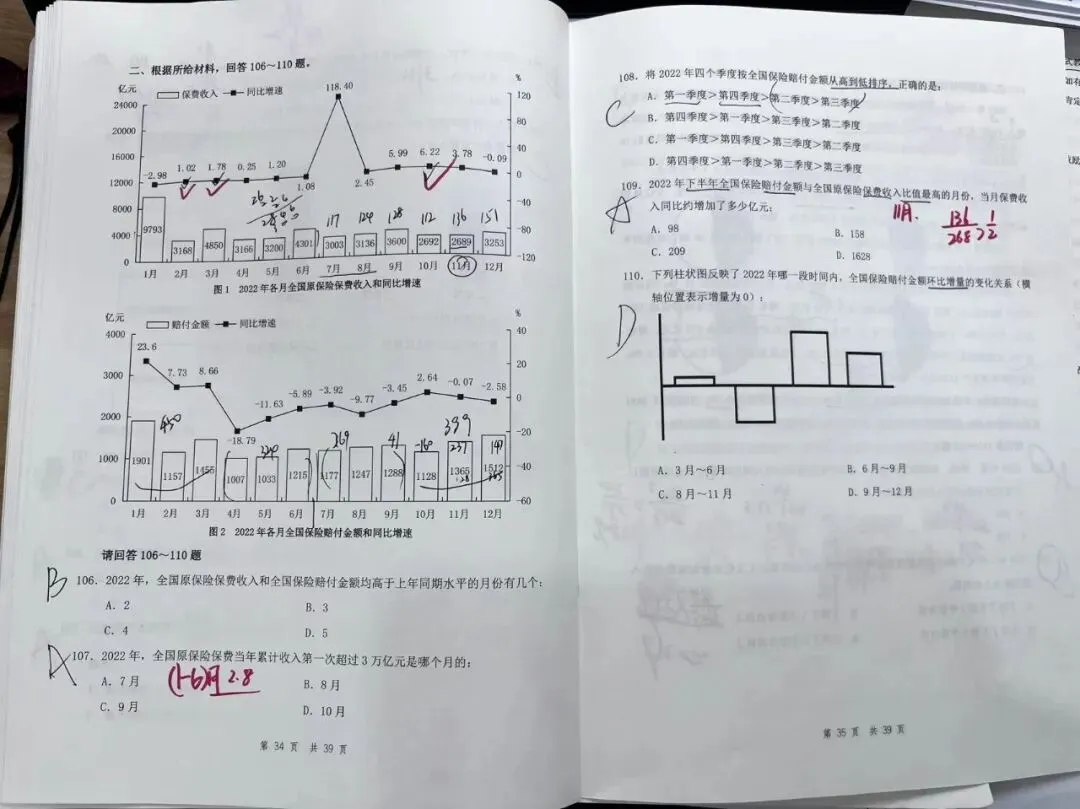 二、根据所给材料，回答 106～110 题。
亿元
%
保费收入
同比增速
24000
20000
16000
12000
8000
4000
0
120
80
40
0
-40
-80
-120
-2.98
1.02
1.78
0.25
1.20
1.08
118.40
2.45
5.99
6.22
3.78
-0.09
117
124
128
112
136
151
9793
3168
4850
3166
3200
4301
3003
3136
3600
2692
2689
3253
1月
2月
3月
4月
5月
6月
7月
8月
9月
10月
11月
12月
图 1 2022 年各月全国原保险保费收入和同比增速
亿元
%
赔付金额
同比增速
4000
3000
2000
1000
0
40
20
0
-20
-40
-60
23.6
7.73
8.66
-18.79
-11.63
-5.89
-3.92
-9.77
-3.45
2.64
-0.07
-2.58
339
41
-160
237
147
1901
1157
1455
1007
1033
1215
1177
1247
1288
1128
1365
1512
1月
2月
3月
4月
5月
6月
7月
8月
9月
10月
11月
12月
图 2 2022 年各月全国保险赔付金额和同比增速
请回答 106～110 题
B
106. 2022 年，全国原保险保费收入和全国保险赔付金额均高于上年同期水平的月份有几个：
A. 2
B. 3
C. 4
D. 5
A
107. 2022 年，全国原保险保费当年累计收入第一次超过 3 万亿元是哪个月的：
A. 7 月
(1-6)月 2.8
B. 8 月
C. 9 月
D. 10 月
第 34 页 共 39 页
108. 将 2022 年四个季度按全国保险赔付金额从高到低排序，正确的是：
C
A. 第一季度>第四季度>第二季度>第三季度
B. 第四季度>第一季度>第三季度>第二季度
C. 第一季度>第四季度>第三季度>第二季度
D. 第四季度>第一季度>第二季度>第三季度
109. 2022 年下半年全国保险赔付金额与全国原保险保费收入比值最高的月份，当月保费收
入同比约增加了多少亿元：
A
11月.
136
268
> 1
2
A. 98
B. 158
C. 209
D. 1628
110. 下列柱状图反映了 2022 年哪一段时间内，全国保险赔付金额环比增量的变化关系（横
轴位置表示增量为 0）：
D
A. 3 月～6 月
B. 6 月～9 月
C. 8 月～11 月
D. 9 月～12 月
第 35 页 共 39 页